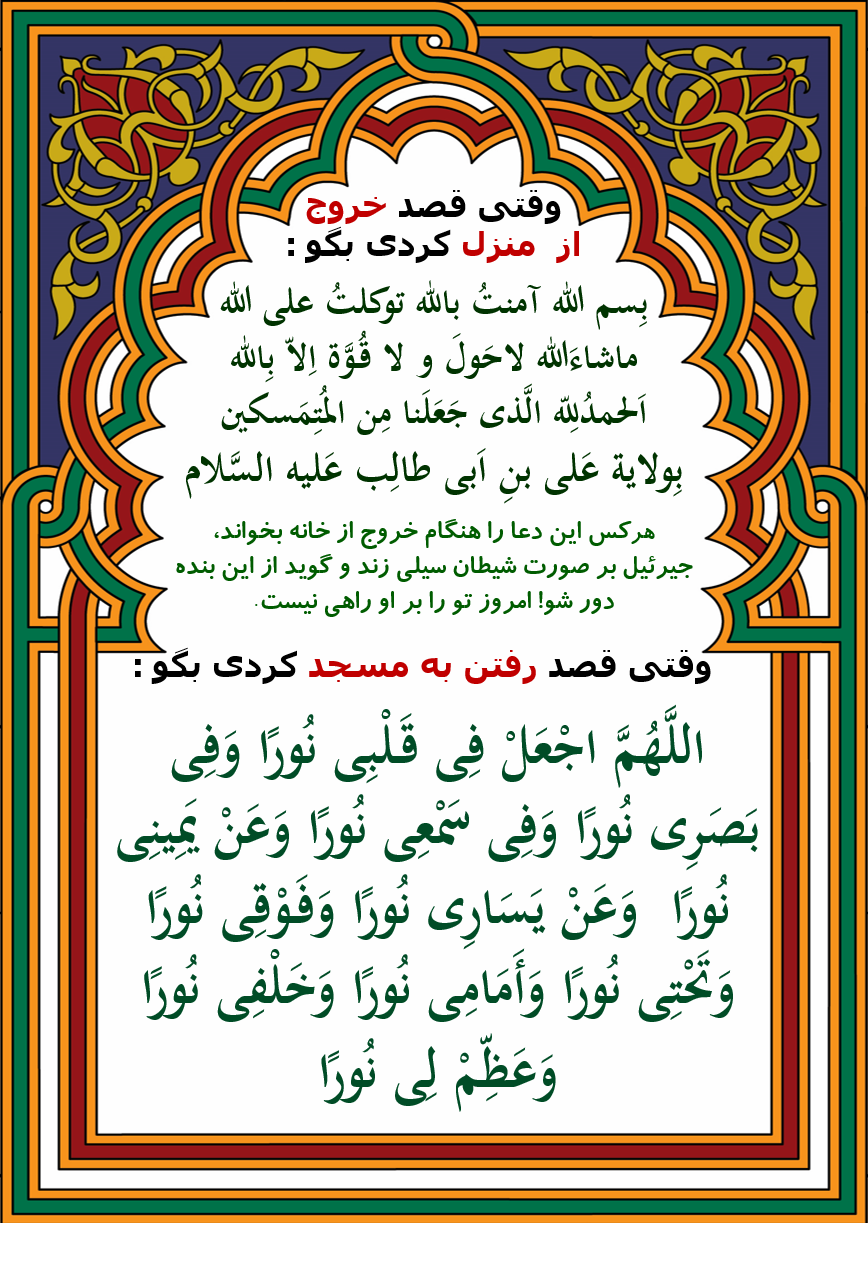 وقتی قصد خروج
از منزل کردی بگو :
بِسم الله آمنتُ بالله توکلتُ علی الله
ماشاءَالله لاحَولَ و لا قُوَّة اِلاّ بِالله
اَلحمدُلِلّه الَّذی جَعَلَنا مِن المُتِمَسکین
بِولایة عَلی بنِ اَبی طالِب عَلیه السَّلام
هرکس این دعا را هنگام خروج از خانه بخواند،
جیرئیل بر صورت شیطان سیلی زند و گوید از این بنده
دور شو! امروز تو را بر او راهی نیست.
وقتی قصد رفتن به مسجد کردی بگو :
اللَّهُمَّ اجْعَلْ فِی قَلْبِی نُورًا وَفِی
بَصَرِی نُورًا وَفِی سَمْعِی نُورًا وَعَنْ یَمِینِی
نُورًا وَعَنْ یَسَارِی نُورًا وَفَوْقِی نُورًا
وَتَحْتِی نُورًا وَأَمَامِی نُورًا وَخَلْفِی نُورًا
وَعَظِّمْ لِی نُورًا